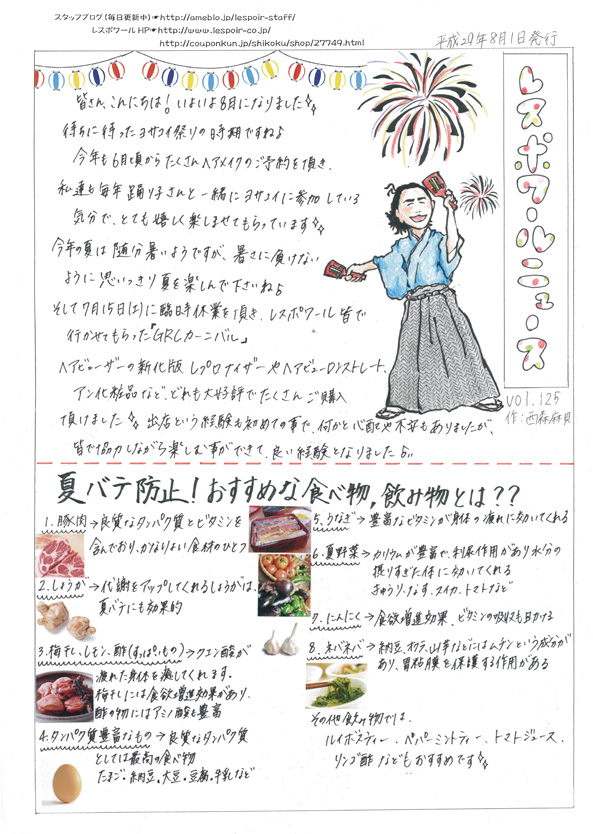 スタッフブログ(毎日更新中)☛http://ameblo.jp/lespoir-staff/
レスポワールHP☛http://www.lespoir-co.jp/
http://couponkun.jp/shikoku/shop/27749.html
平成29年8月1日発行
レスポワールニュース
vol.125
作:西森麻貝
皆さん、こんにちは!いよいよ8月になりました
待ちに待ったヨサコイ祭りの時期ですね♪
今年も6月頃からたくさんヘアメイクのご予約を頂き、
私達も毎年踊り子さんと一緒にヨサコイに参加している
気分で、とても嬉しく楽しませてもらっています
今年の夏は随分暑いようですが、暑さに負けない
ように思いっきり夏を楽しんで下さいね♪
そして7月15日(土)に臨時休業を頂き、レスポワール皆で
行かせてもらった「GRCカーニバル」
ヘアビューザーの新化版レプロナイザーやヘアビューロンストレート、
アン化粧品など、どれも大好評でたくさんご購入
頂けました 出店という経験も初めての事で、何かと心配や不安もありましたが、
皆で協力しながら楽しむ事ができて、良い経験となりました
夏バテ防止!おすすめな食べ物,飲み物とは??
1.豚肉→良質なタンパク質とビタミンを
含んでおり、かなりよい食材のひとつ
2.しょうが→代謝をアップしてくれるしょうがは、
夏バテにも効果的
3.梅干し、レモン、酢(すっぱいもの)→クエン酸が
疲れた身体を癒してくれます。
梅干しには食欲増進効果があり、
酢の物にはアミノ酸も豊富
4.タンパク質豊富なもの→良質なタンパク質
としては最高の食べ物
たまご。納豆。大豆。豆腐。牛乳など
5.うなぎ→豊富なビタミンが身体の疲れに効いてくれる
6.夏野菜→カリウムが豊富で、利尿作用があり水分の
摂りすぎた体に効いてくれる
きゅうり、なす、スイカ、トマトなど
7.にんにく→食欲増進効果、ビタミンの吸収も助ける
8.ネバネバ→納豆、オクラ、山芋などにはムチンという成分が
あり、胃粘膜を保護する作用がある
その他飲み物では、
ルイボスティー、ペパーミントティー、トマトジュース、
リンゴ酢などもおすすめです